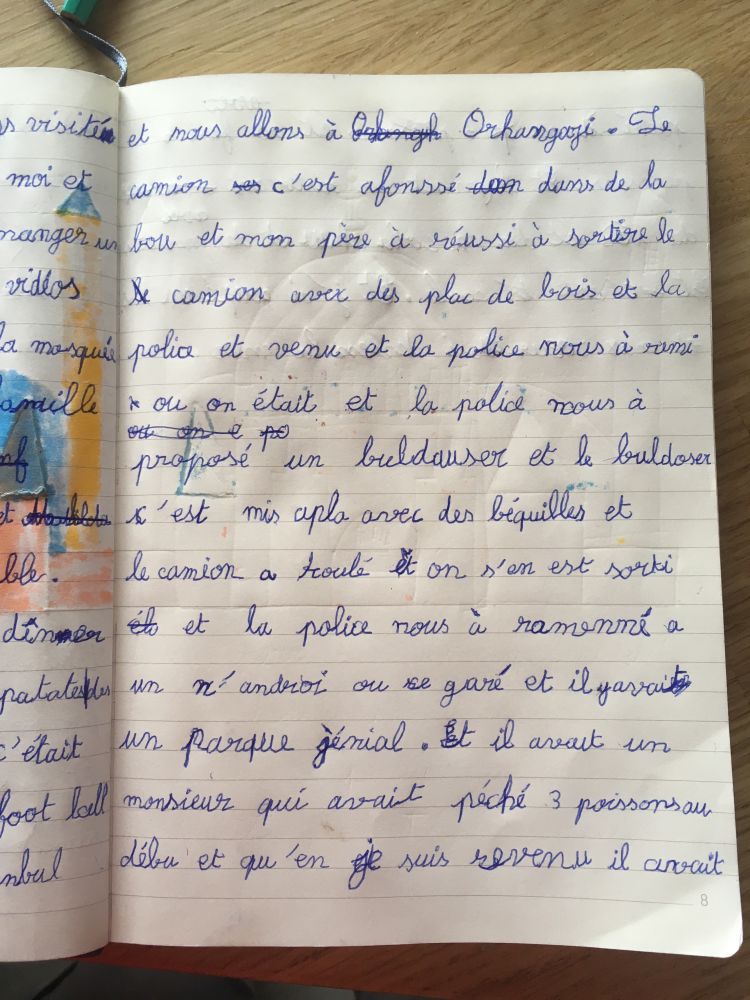 s visité
moi et
manger un
vidéos
la mosquée
famille
et
ble.
dîner
patates des
c'était
foot ball
nbul
et nous allons à Orhangazi. Le
camion c'est afonssé dans de la
bou et mon père à réussi à sortire le
camion avec des plac de bois et la
police et venu et la police nous à rami
ou on était et la police nous à
proposé un buldauser et le buldoser
s'est mis apla avec des béquilles et
le camion a roulé et on s'en est sorti
et la police nous à ramenmé a
un n'androi ou se garé et il yavait
un parque génial. Et il avait un
monsieur qui avait péché 3 poissons au
débu et qu'en je suis revenu il avait
8